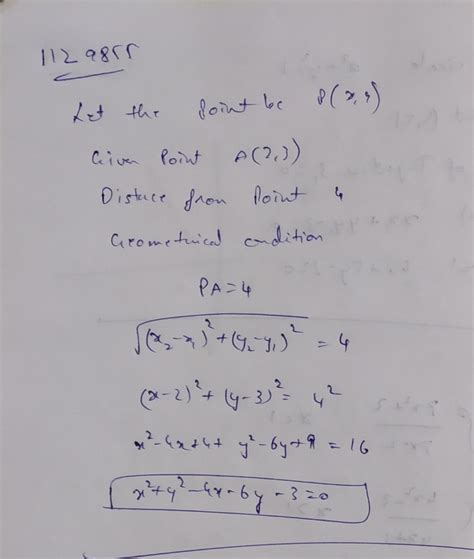 112 9855
Let the Point be P(x,y)
Given Point A(2,3)
Distace from Point 4
Geometrical condition
PA=4
√(x₂-x₁)²+(y₂-y₁)² = 4
(x-2)²+(y-3)² = 4²
x²-4x+4+ y²-6y+9 = 16
x²+y²-4x-6y-3=0